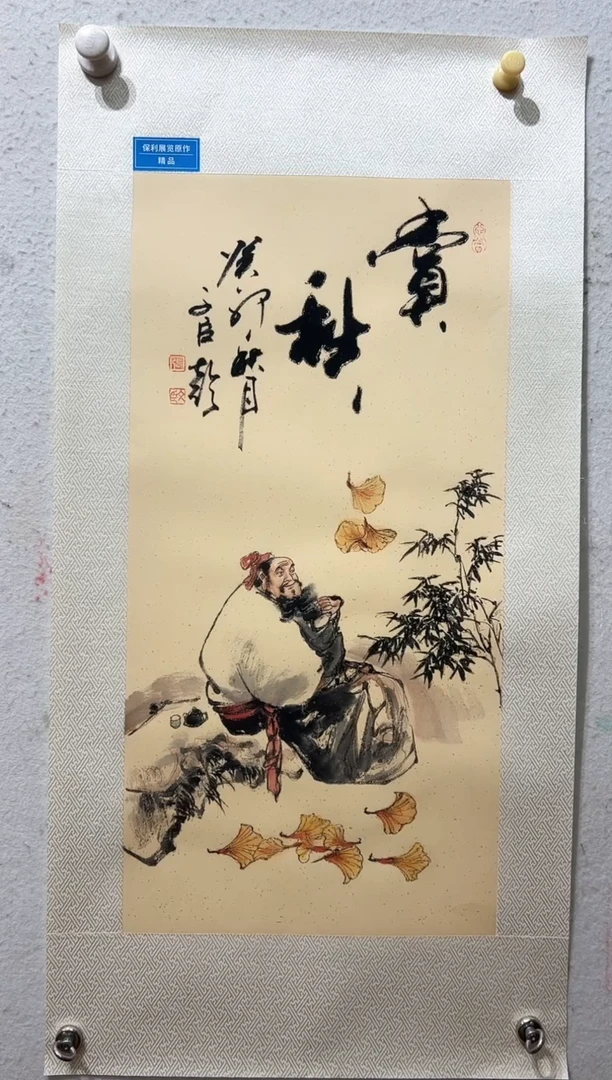 保利展览原作
精品
赏
秋
癸卯秋月